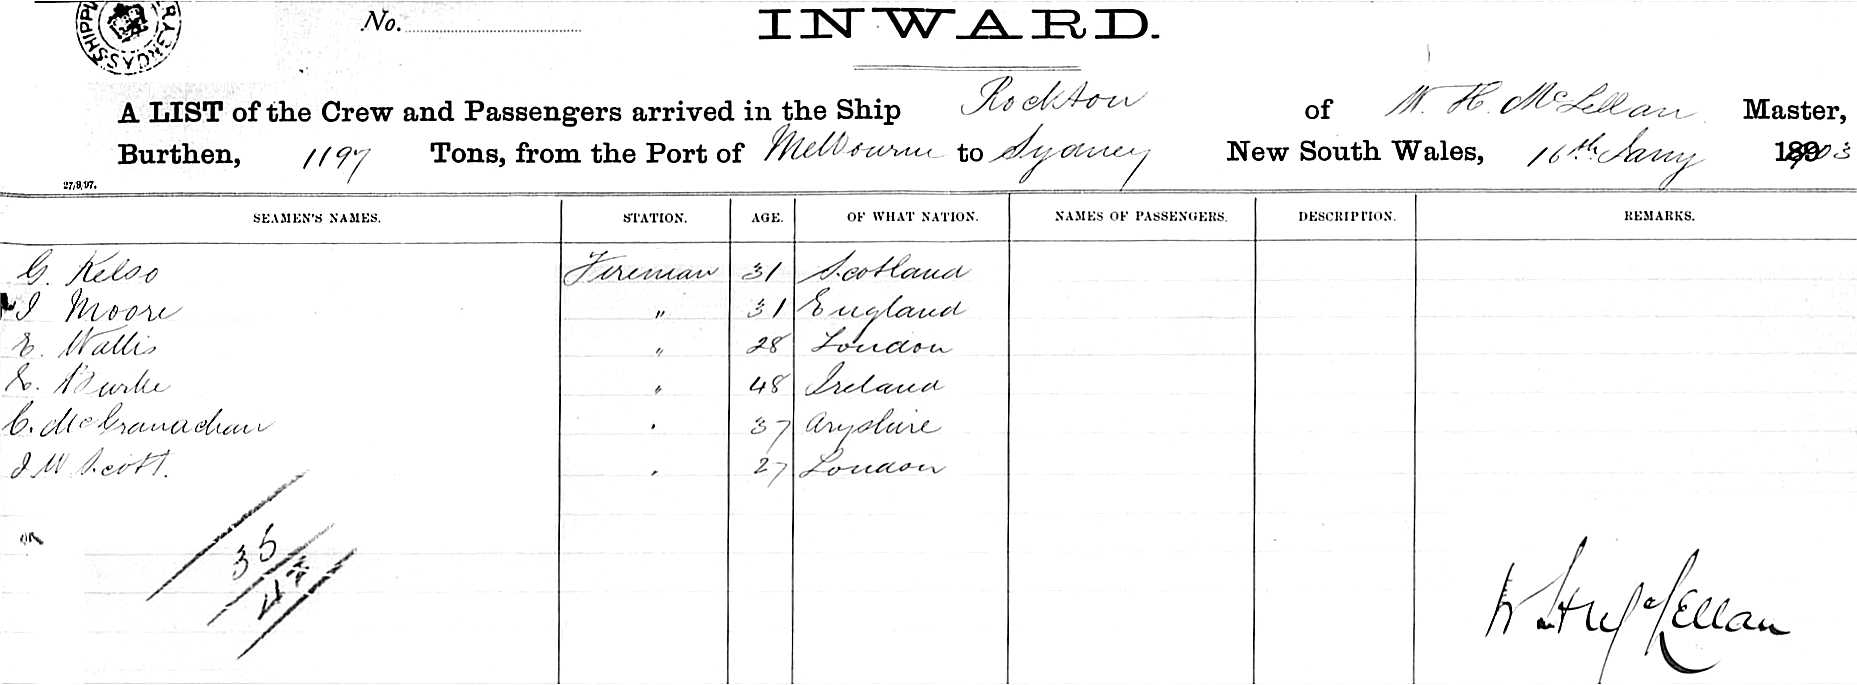 No.
INWARD.
A LIST of the Crew and Passengers arrived in the Ship Rockton of W. H. McLellan Master,
Burthen, 1197 Tons, from the Port of Melbourne to Sydney New South Wales, 16th Jany 1903
27/9/97.
SEAMEN'S NAMES. STATION. AGE. OF WHAT NATION. NAMES OF PASSENGERS. DESCRIPTION. REMARKS.
G. Kelso Fireman 31 Scotland
J Moore " 31 England
E. Wallis " 28 London
Burke " 48 Ireland
C. McGranachan " 37 Aryshire
J W Scott. " 27 London
35
W H McLellan